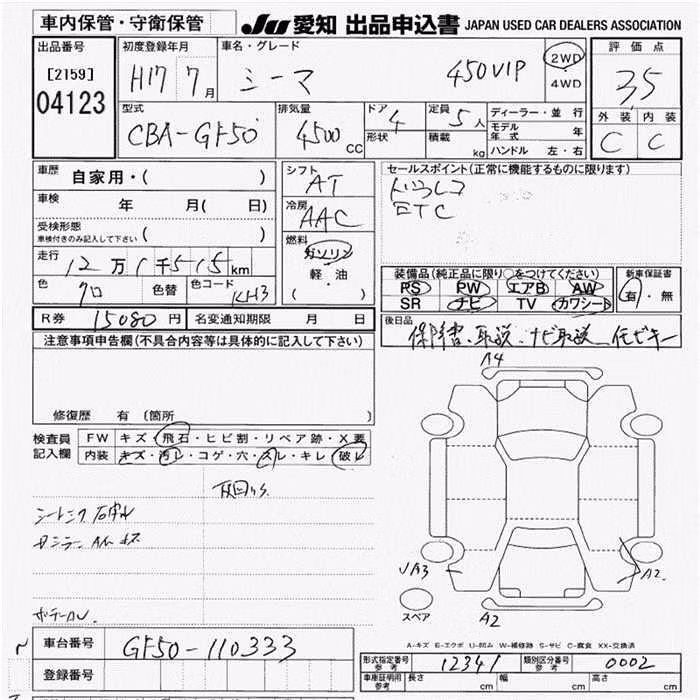 車内保管・守衛保管 JU 愛知 出品申込書 JAPAN USED CAR DEALERS ASSOCIATION
出品番号 [2159] 04123
初度登録年月 H17 7月
車名・グレード シーマ 450VIP
2WD・4WD
評価点 3.5
外装 C 内装 C
型式 CBA-GF50
排気量 4500cc
ドア形状 4
定員 5人
積載 kg
ディーラー・並行
モデル年式 年
ハンドル 左・右
車歴 自家用・( )
車検 年 月( 日)
受検形態 ( )
車検付きのみ記入して下さい
走行 12万1千515km
色 クロ 色替 色コード KH3
シフト AT
冷房 AAC
燃料 ガソリン
軽・油
( )
セールスポイント(正常に機能するものに限ります)
ETC
装備品(純正品に限り○をつけてください)
PS PW エアB AW
SR ナビ TV カワシート
新車保証書
有・無
R券 15080円 名変通知期限 月 日
後日品 保障書、取説、ナビ取説
注意事項申告欄(不具合内容等は具体的に記入して下さい)
修復歴 有 (箇所 )
検査員記入欄 FW キズ・飛石・ヒビ割・リペア跡・X要
内装 キズ・汚レ・コゲ・穴・スレ・キレ・破レ
A4
A3
A2
スペア
A2
A-キズ E-エクボ U-凹み W-補修跡 S-サビ C-腐食 XX-交換済
車台番号 GF50-110333
登録番号
形式指定番号 参考 12341 類別区分番号 参考 0002
車庫証明用 参考 長さ cm 幅 cm 高さ cm